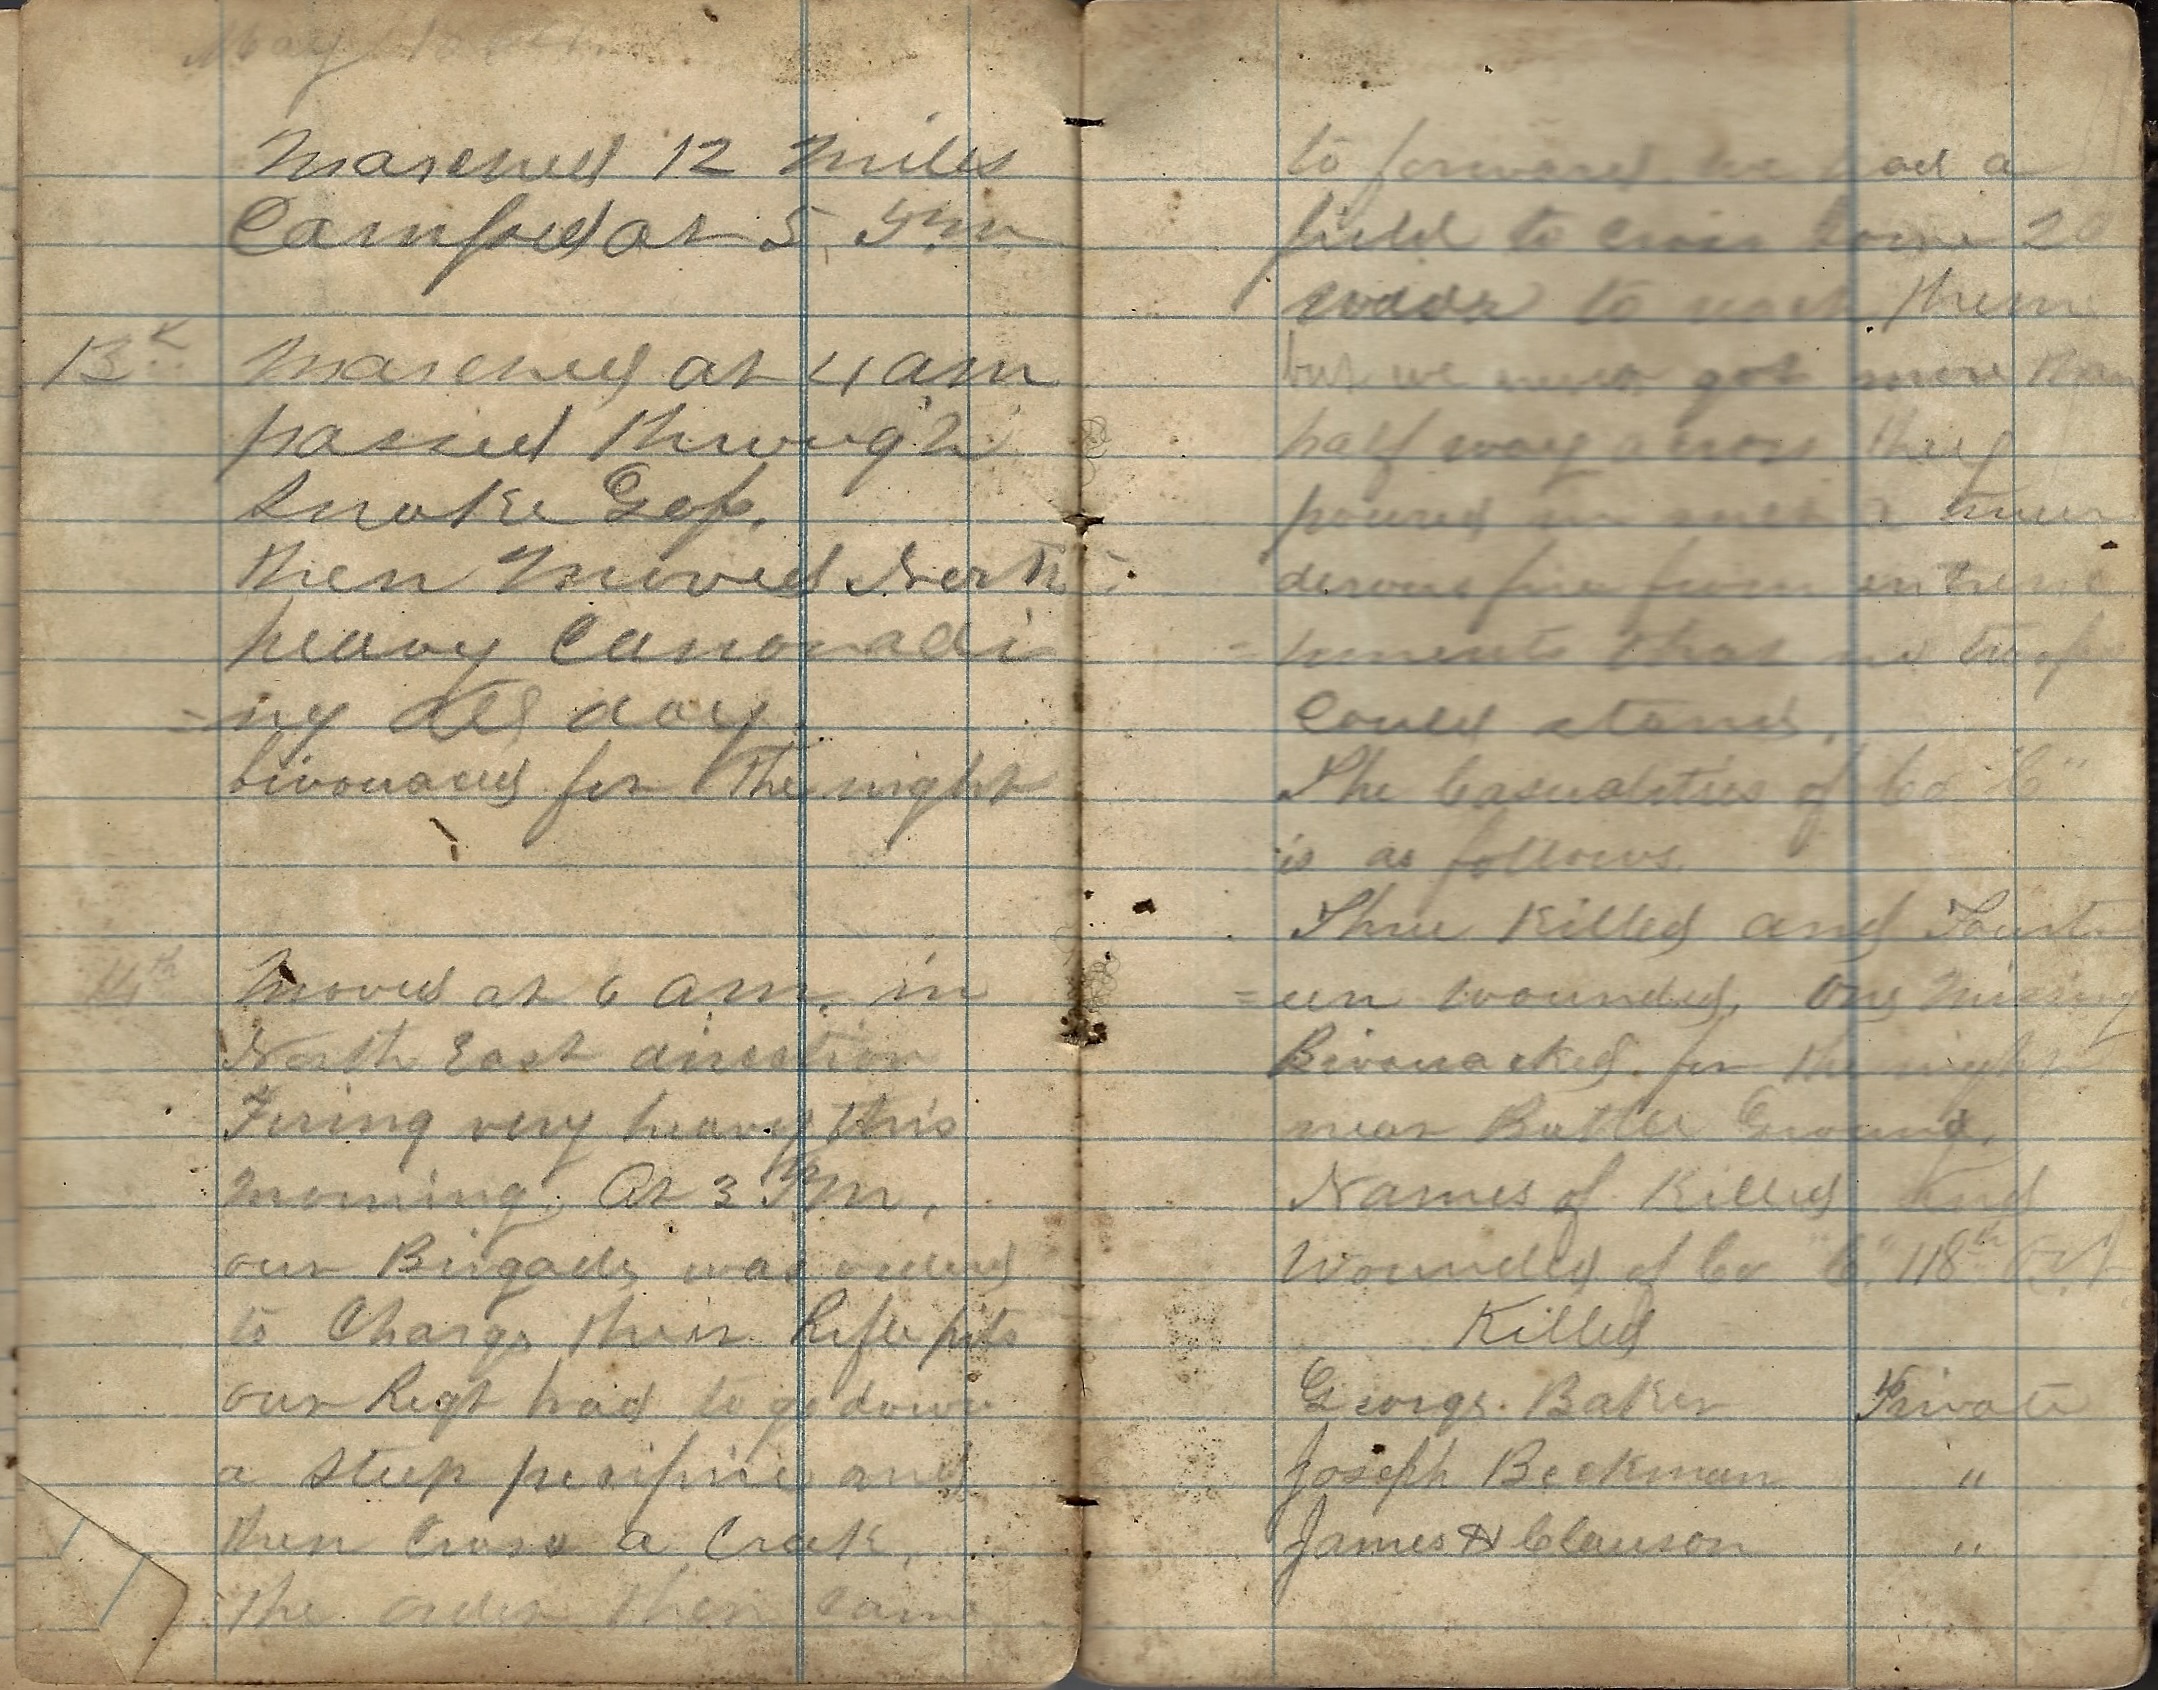 May
Marched 12 Miles
Camped at 5 Pm
13th Marched at 4 am
passed through
Snake Gap.
then Moved North
heavy Cannonadi
=ng all day.
bivouaced for the night
14th Moved at 6 am. in
North East direction
Firing very heavy this
morning. At 3 Pm,
our Brigade was orderd
to Charge their Rifle pits
our Regt had to go down
a steep presipine and
then Cross a Creek.
the order then came
to forward we had a
field to cross some 20
rods to reach them
but we never got more than
half way across they
poured in such a mur
derous fire from entrench
=ments that no troops
Could stand.
The Casualities of Co "C"
is as follows.
Three Killed and Fourte
=en wounded, One Missing
Bivouacked for the night
near Battle Ground.
Names of Killed and
Wounded of Co "C" 118th O.V.
Killed
George. Baker Private
Joseph Beckman "
James H Clauson "